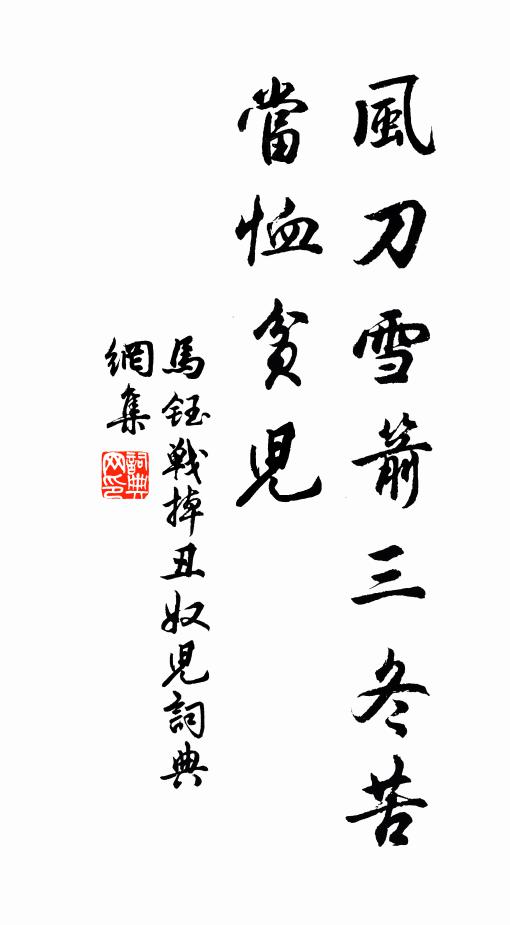 風刀雪箭三冬苦
當恤貧兒
馬鈺戰掉丑奴兒詞典
網集
詞典網印